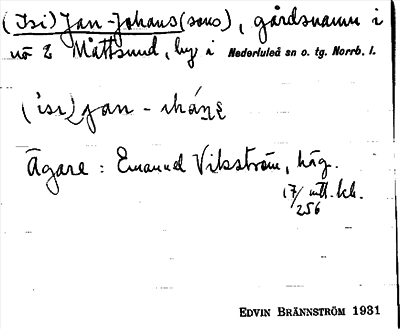 (Isi) Jan-Johans(sons), gårdsnamn i
nö 2 Måttsund, by i Nederluleå sn o. tg. Norrb. l.
Ägare : Emanuel Viksström, häg.
17/256 mtl. kl.
EDVIN BRÄNNSTRÖM 1931